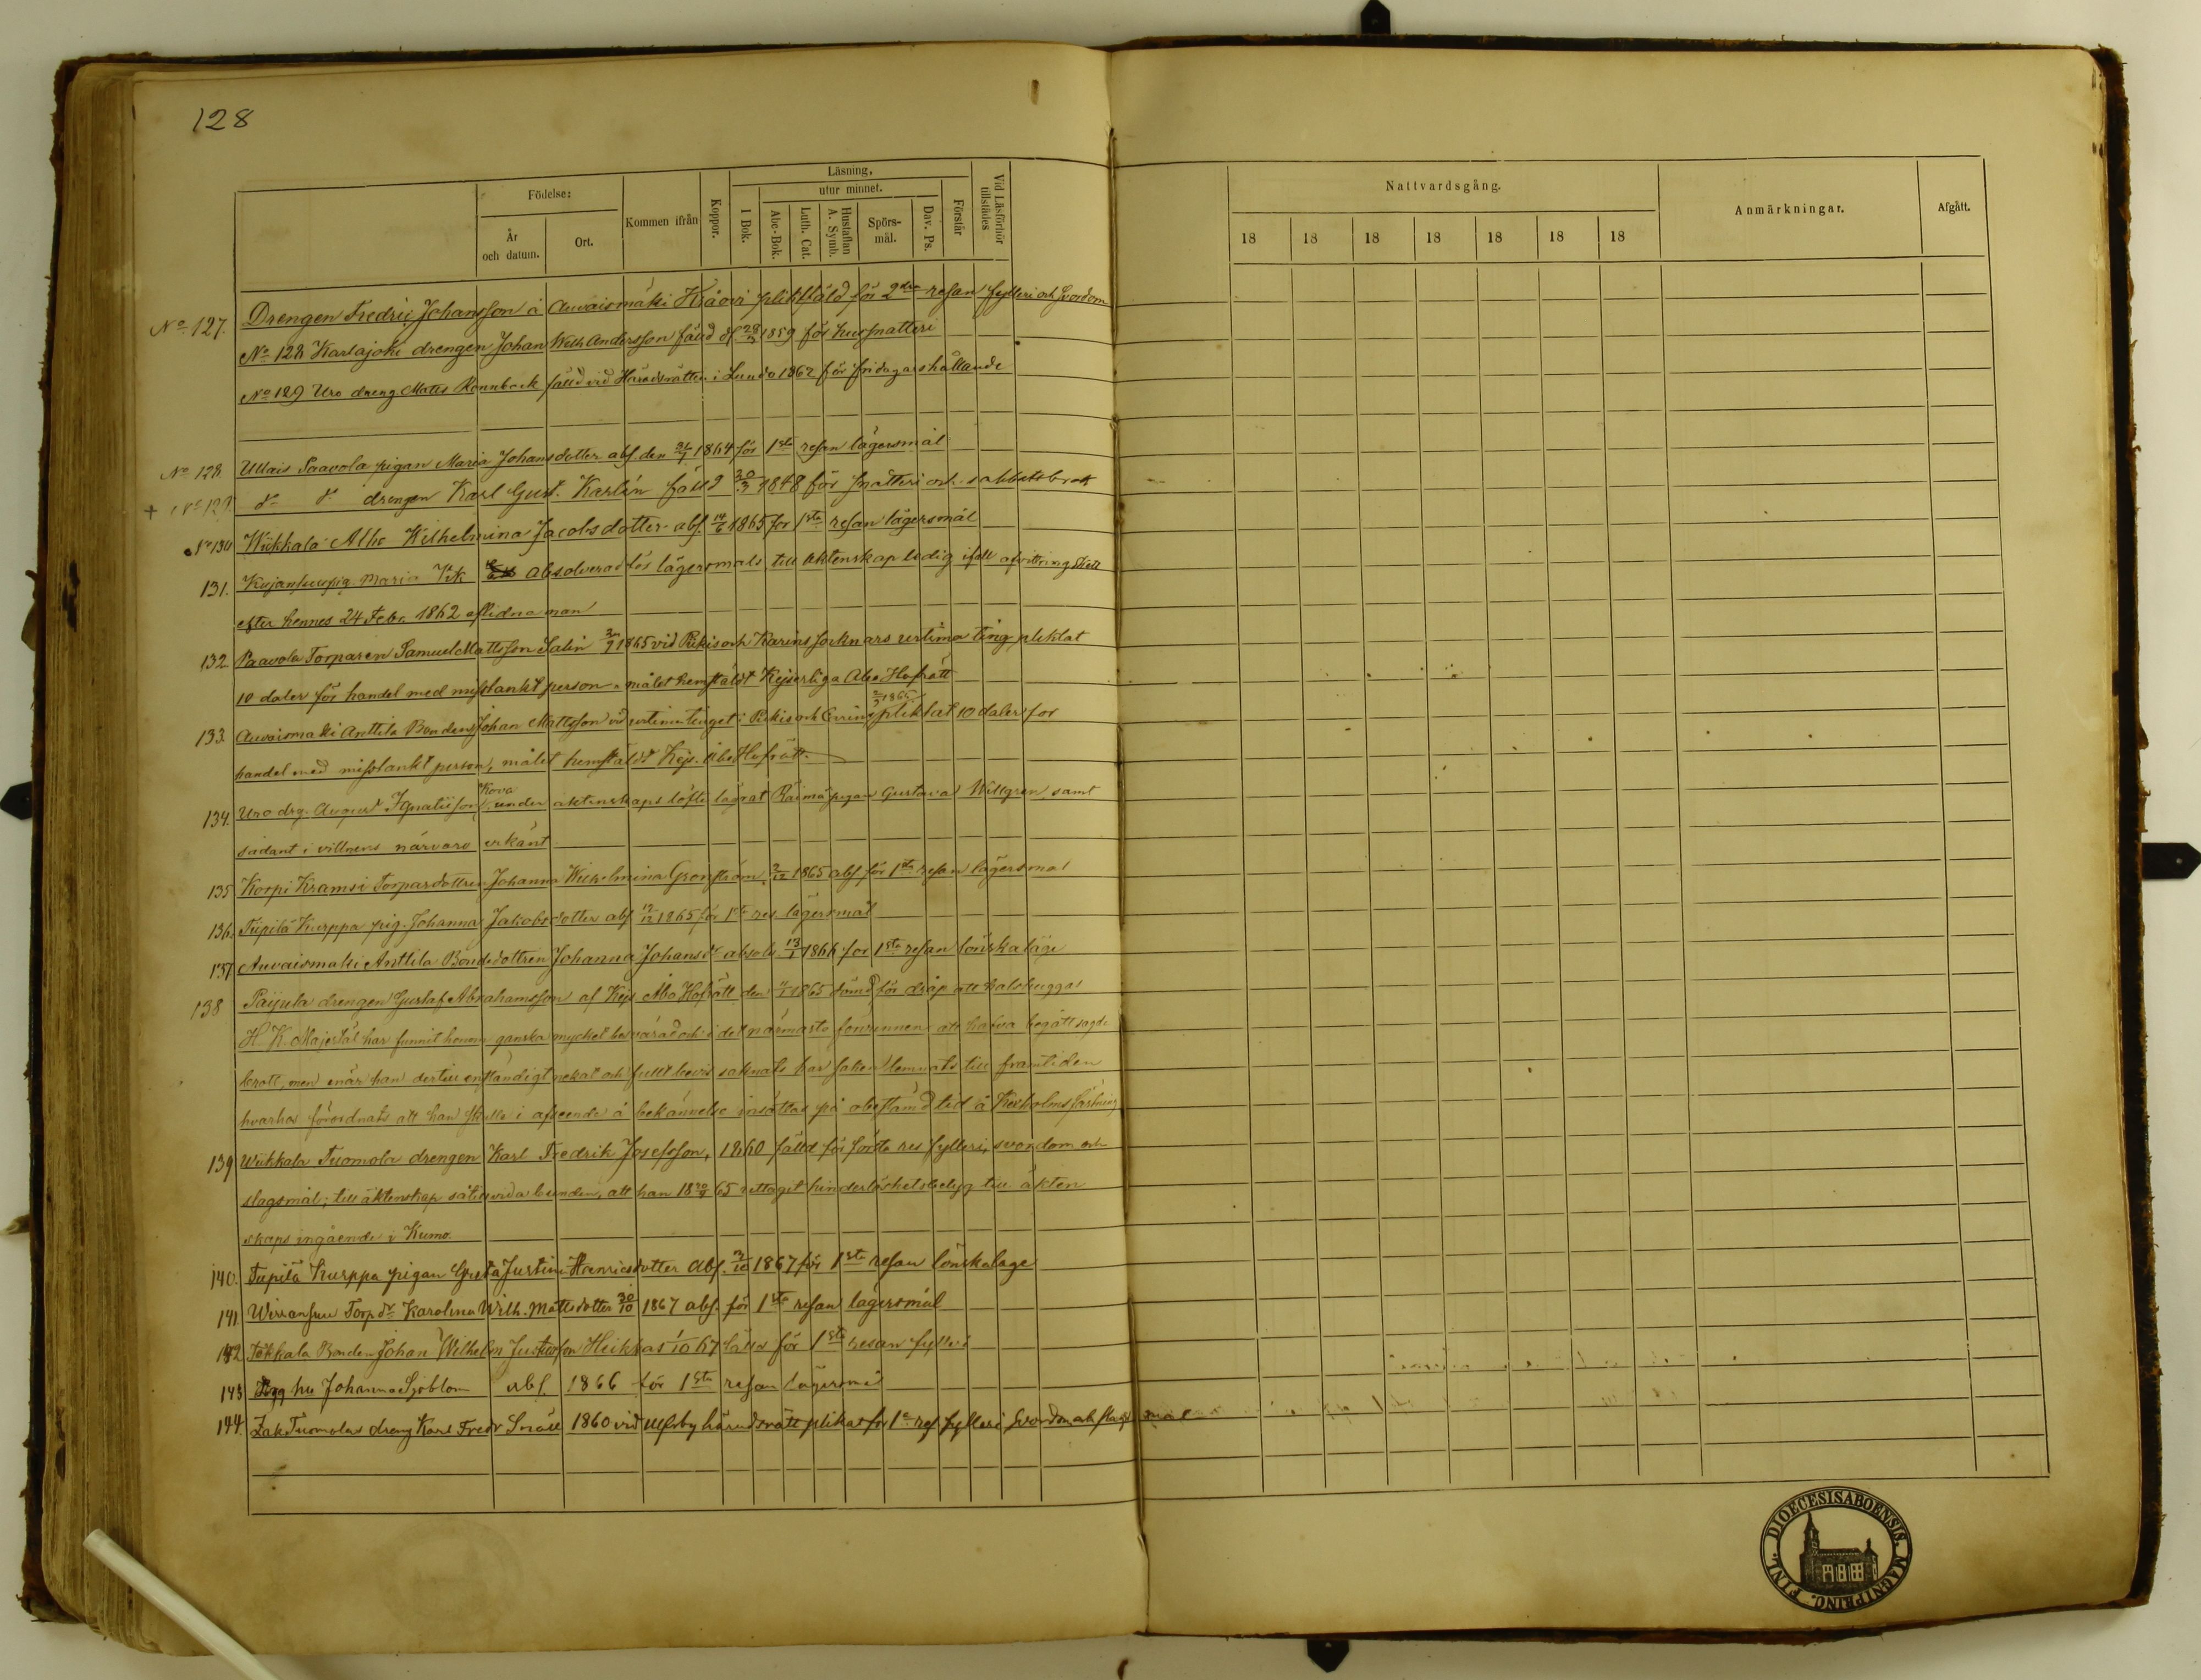 128
Läsning,
Födelse:
utur minnet.
Vid Läsförhör tillstädes
Kommen ifrån
Koppor.
I Bok.
Abc-Bok.
Luth. Cat.
Hustaflan A. Symb.
Spörs-mål.
Dav. Ps.
Förstår
År och datum.
Ort.
Nattvardsgång.
Anmärkningar.
Afgått.
18 18 18 18 18 18 18
No 127. Drengen Fredric Johansson å Auvaismäki Kåori pliktfäld för 2dra resan fylleri och svordom
No 128 Karlajoki drengen Johan Wilh Andersson fälld d. 28/3 1859 för hussnatteri
No 129 Uro dreng Matts Rönnback fälld vid Häradsrätten i Lundo 1862 för fridagars hållande
No 128 Ullais Paavola pigan Maria Johansdotter abs. den 31/1 1864 för 1sta resan lägersmål
+ No 129 do do drengen Karl Gust. Karlin fälld 20/3 1848 för snatteri och sabbatsbrott
No 130 Wiikkala Alho Wilhelmina Jacobsdotter abs. 14/6 1865 för 1sta resan lägersmål
131. pig. Maria absolverad för lägersmål, till äktenskap ledig ifall afvittring skett
efter hennes 24 Febr 1862 aflidna man
132 Paavola Torparen Samuel Mattsson Salin 1865 vid Pikis och Karins socknars urtima ting pliktat
10 daler för handel med misstänkt person, målet hemstäldt Kejserliga Åbo Hofrätt
133. Auvaismäki Anttila Bondens Johan Mattsson vid urtima tinget i Pikis och pliktat 10 daler för
handel med misstänkt person, målet hemstäldt Kejs. Åbo Hofrätt.
134. Uro drg. August Ignatiisson, Kova under äktenskaps löfte lägrat Räimä pigan Gustava Willgren, samt
sådant i vittnens närvaro erkänt
135 Korpi Kramsi Torpardottren Johanna Wilhelmina Grönström, 2/12 1865 abs. för 1sta resan lägersmål
136. Tupila Kurppa pig. Johanna Jakobsdotter abs. 17/12 1865 för 1sta res. lägersmål
137 Auvaismäki Anttila Bondedottren Johanna Johansdr absolv. 13/1 1866 för 1sta resan lönskaläge
138 Paijula drengen Gustaf Abrahamsson af Kejs Åbo Hofrätt den 1865 dömd för dråp att halshuggas
H K. Majestät har funnit honom ganska mycket besvärad och i det närmaste förvunnen att hafva begått sagde
brott, men enär han dertill enständigt nekat och fullt bevis saknats har saken lemnats till framtiden
hvarhos förordnats att han skulle i afseende å bekännelse insättas på obestämd tid å Kexholms fästning
139 Wiikkala Tuomola drengen Karl Fredrik Josefsson, 1860 fälld för första res fylleri, svordom och
slagsmål; till äktenskap såtillvida bunden, att han 18 20/9 65 uttagit hinderlöshetsbetyg till äkten
skaps ingående i Kumo.
140. Tupila Kurppa pigan Greta Justina Henricsdotter abs. 3/10 1867 för 1sta resan lönskaläge
141 Torp dr Karolina Wilh. Mattsdotter 20/10 1867 abs. för 1sta resan lägersmål
142 Tökkala Bonden Johan Wilhelm Justusson Heikkas 1/10 67 fälld för 1sta resan fylleri
143 hu Johanna Sjöblom abs. 1866 för 1sta resan lägersmål
144. Zak Tuomolas dräng Karl Fredr Småll 1860 vid Ulfsby häradsrätt pliktat för 1a res fylleri svordom ak slagsmål
FINL. DIOECESIS ABOENSIS. MAGNI PRINC.